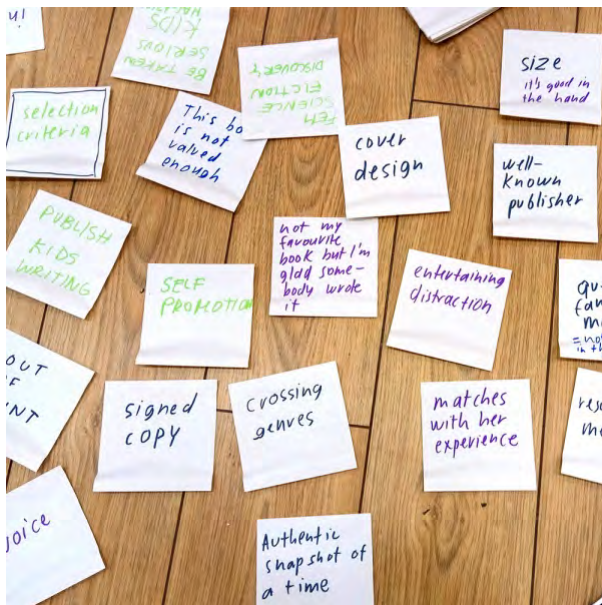 BE TAKEN
SERIOUS
KIDS
FEM
SCIENCE
FICTION
DISCOVERY
size
it's good in
the hand
selection
criteria
This bo
is not
valued
enough
cover
design
well-
known
publisher
PUBLISH
KIDS
WRITING
not my
favourite
book but I'm
glad some-
body wrote
it
SELF
PROMOTION
entertaining
distraction
signed
COPY
crossing
genres
matches
with her
experience
Authentic
snapshot of
a time